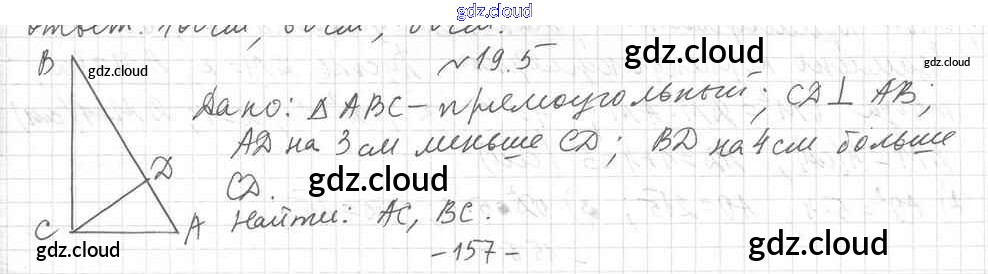 gdz.cloud
№19.5
gdz.cloud
gdz.cloud
gdz.cloud
B
Дано: Δ ABC - прямоугольный; CD ⊥ AB;
AD на 3 см меньше CD; BD на 4 см больше
CD.
gdz.cloud
D
Найти: AC, BC.
C A
gdz.cloud
gdz.cloud
-157-